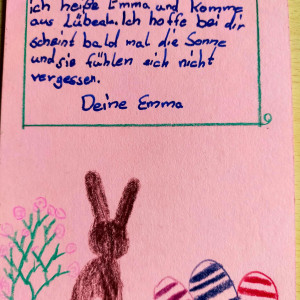 ich heiße Emma und komme
aus Lübeck. Ich hoffe bei dir
scheint bald mal die Sonne
und sie fühlen sich nicht
vergessen.
Deine Emma